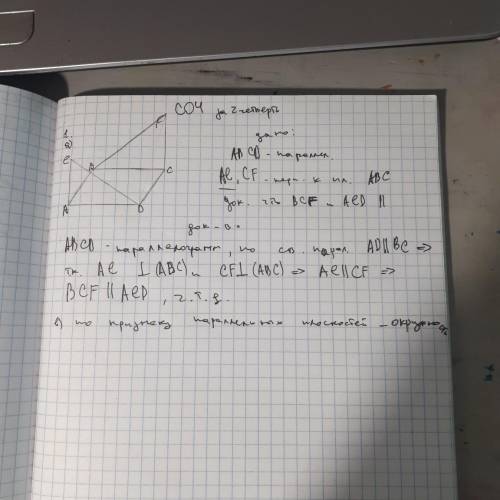 СОЧ за 2 четверть
1.
а)
F
e
B
C
A
D
дано:
ABCD - паралл.
Ae, CF - перп. к пл. ABC
док. что BCF и AeD ||
док-во:
ABCD - параллелограмм, по св. парал. AD||BC =>
тк. Ae ⊥ (ABC) и CF ⊥ (ABC) => Ae||CF =>
BCF || AeD, ч.т.д.
б) по признаку параллельных плоскостей -